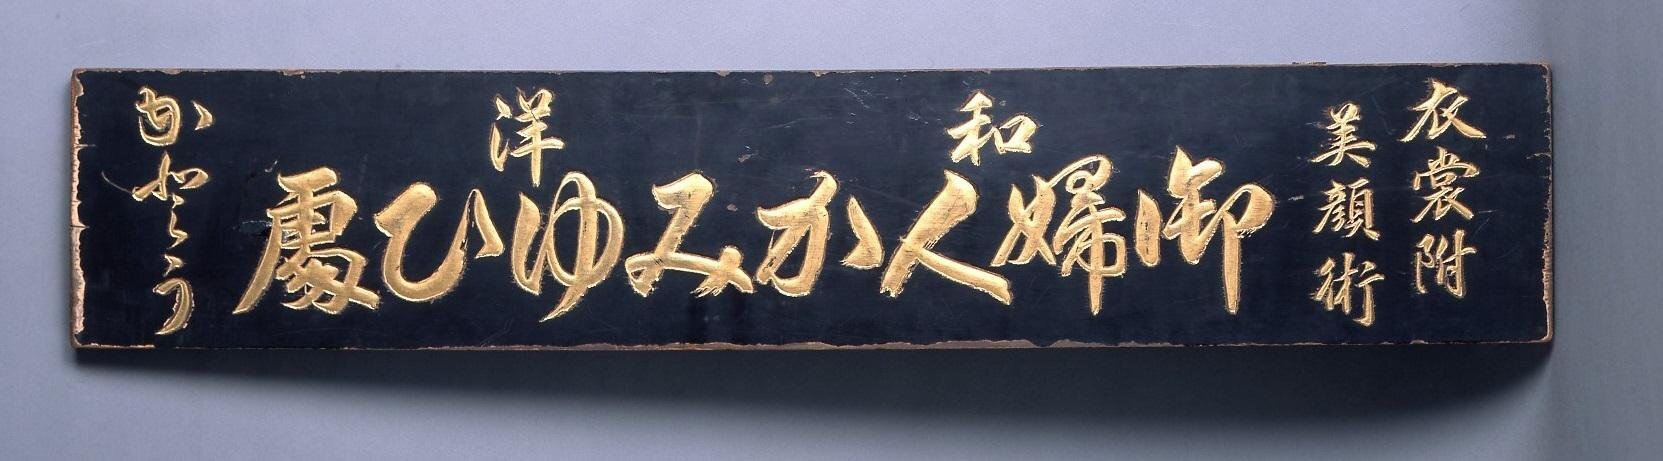 衣裳附
美顔術
和洋
御婦人かみゆひ處
かとう